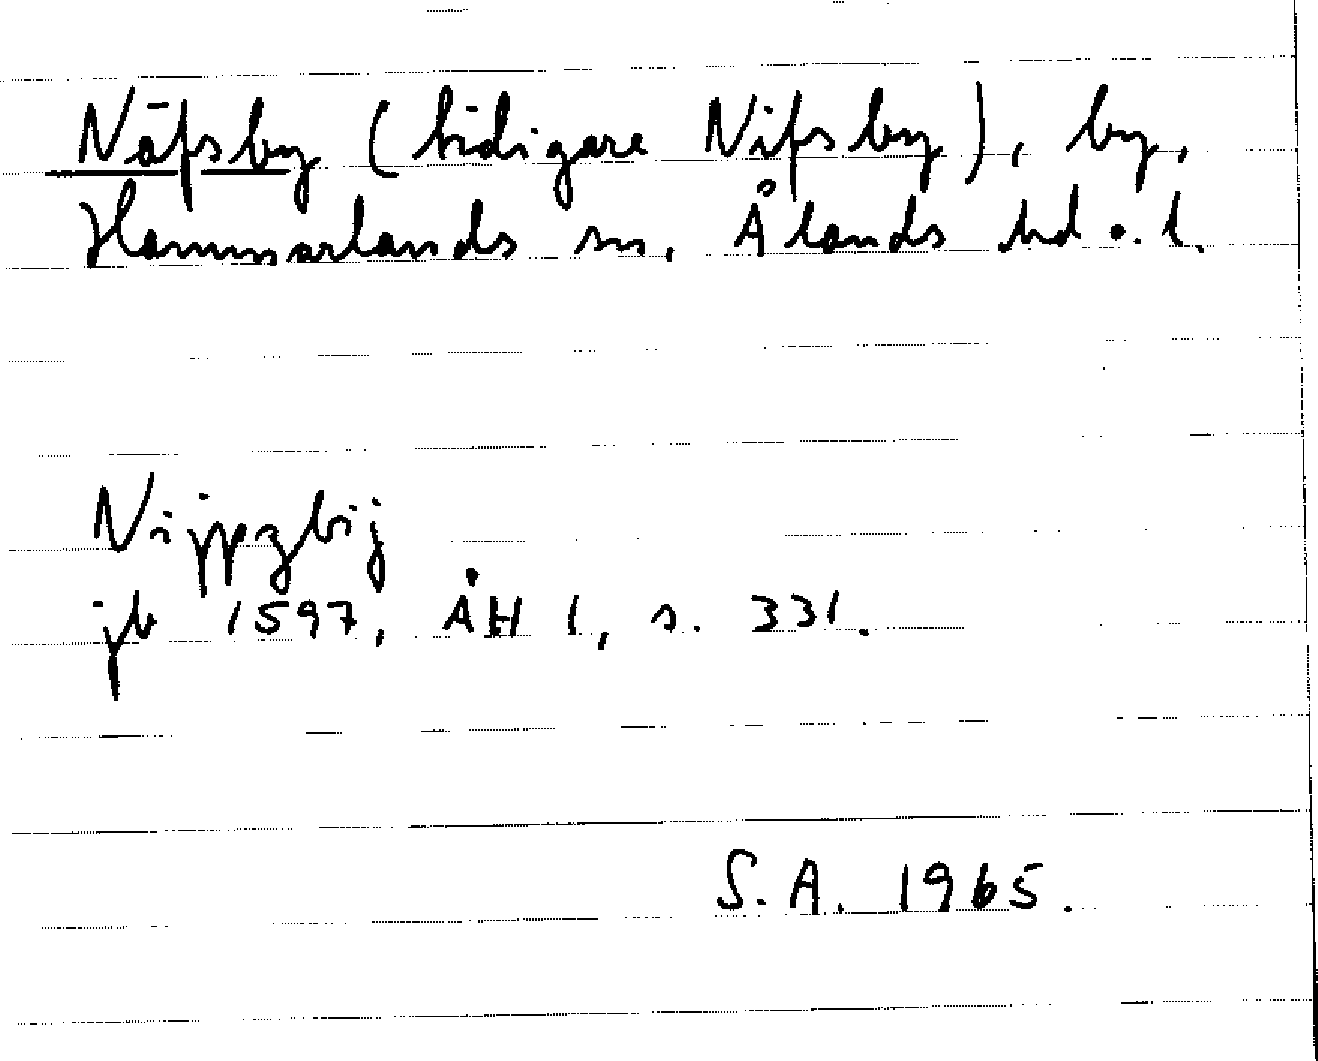 Näfsby (tidigare Nifsby), by,
Hammarlands sn, Ålands hd o. l.
Nijppzbij
jb 1597, ÅH 1, s. 331.
S.A. 1965.